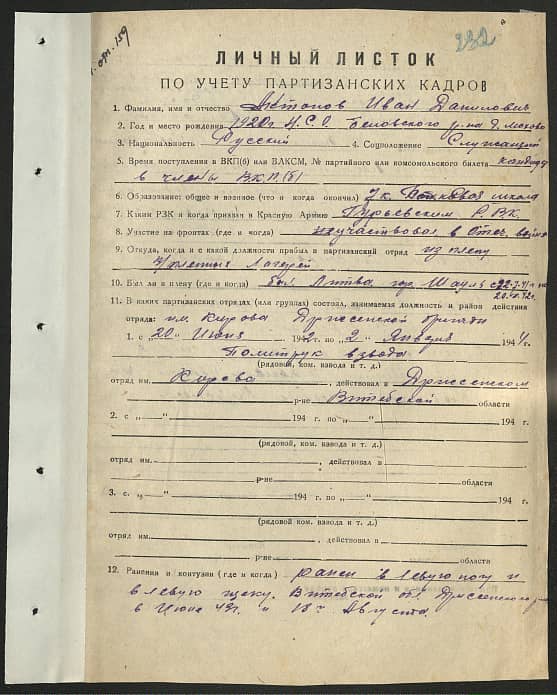 1. орт. 159
232
ЛИЧНЫЙ ЛИСТОК
ПО УЧЕТУ ПАРТИЗАНСКИХ КАДРОВ
1. Фамилия, имя и отчество Антонов Иван Данилович
2. Год и место рождения 1920 г. Н.С.О. Беловского р-на д.
3. Национальность Русский 4. Соцположение Служащий
5. Время поступления в ВКП(б) или ВЛКСМ, № партийного или комсомольского билета кандид.
в члены ВКП(б)
6. Образование: общее и военное (что и когда окончил) 7 к. Полковая школа
7. Каким РЗК и когда призван в Красную Армию Гурьевским РВК
8. Участие на фронтах (где и когда) не участвовал в Отеч. войне
9. Откуда, когда и с какой должности прибыл в партизанский отряд из плену
в/пленных лагерей
10. Был ли в плену (где и когда) был Литва, гор. Шауль с 22-7-41 по
20.VI.42г.
11. В каких партизанских отрядах (или группах) состоял, занимаемая должность и район действия
отряда: им. Кирова Дриссенской бригады
1. с „20“ Июня 1942 г. по „2“ Января 1944 г.
Политрук взвода
(рядовой, ком. взвода и т. д.)
отряд им. Кирова, действовал в Дриссенском
р-не Витебской области
2. с „—“ 194 г. по „—“ 194 г.
(рядовой, ком. взвода и т. д.)
отряд им. , действовал в
р-не области
3. с „—“ 194 г. по „—“ 194 г.
(рядовой, ком. взвода и т. д.)
отряд им. , действовал в
р-не области
12. Ранения и контузии (где и когда) ранен в левую ногу и
в левую щеку. Витебской обл. Дриссенского р-на
в Июне 43г. и 18го Августа.